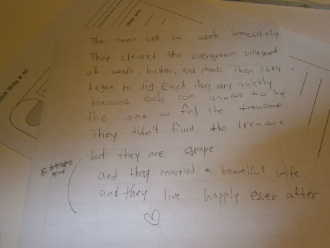 The went out to work immediately.
They cleared the overgrown vineyard
of weeds, bushes, and plants. Then they
began to dig. Each dug very quickly
because each son wanted to be
the one to find the treasure
They didn't find the treasure
but they are grape
and they married a beautiful wife
and they live happily ever after